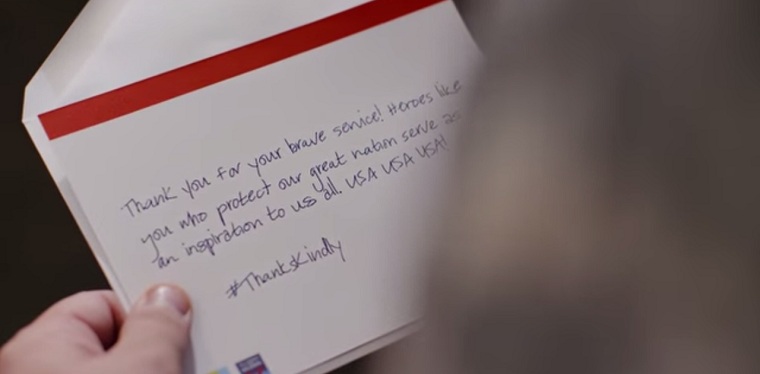 Thank you for your brave service! Heroes like
you who protect our great nation serve as
an inspiration to us all. USA USA USA!
#ThanksKindly